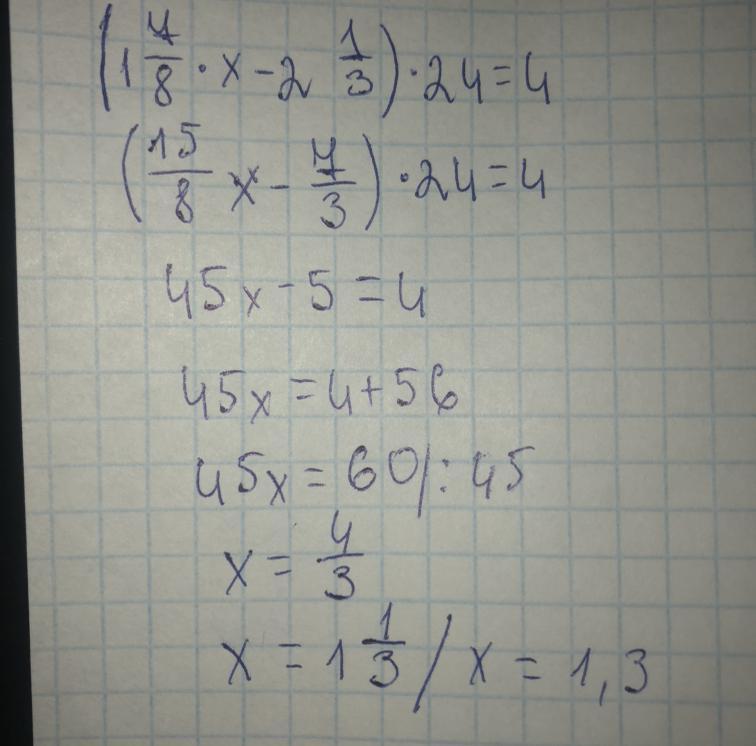 (1 7/8 · x - 2 1/3) · 24 = 4
(15/8 x - 7/3) · 24 = 4
45x - 5 = 4
45x = 4 + 56
45x = 60 / : 45
x = 4/3
x = 1 1/3 / x = 1,3